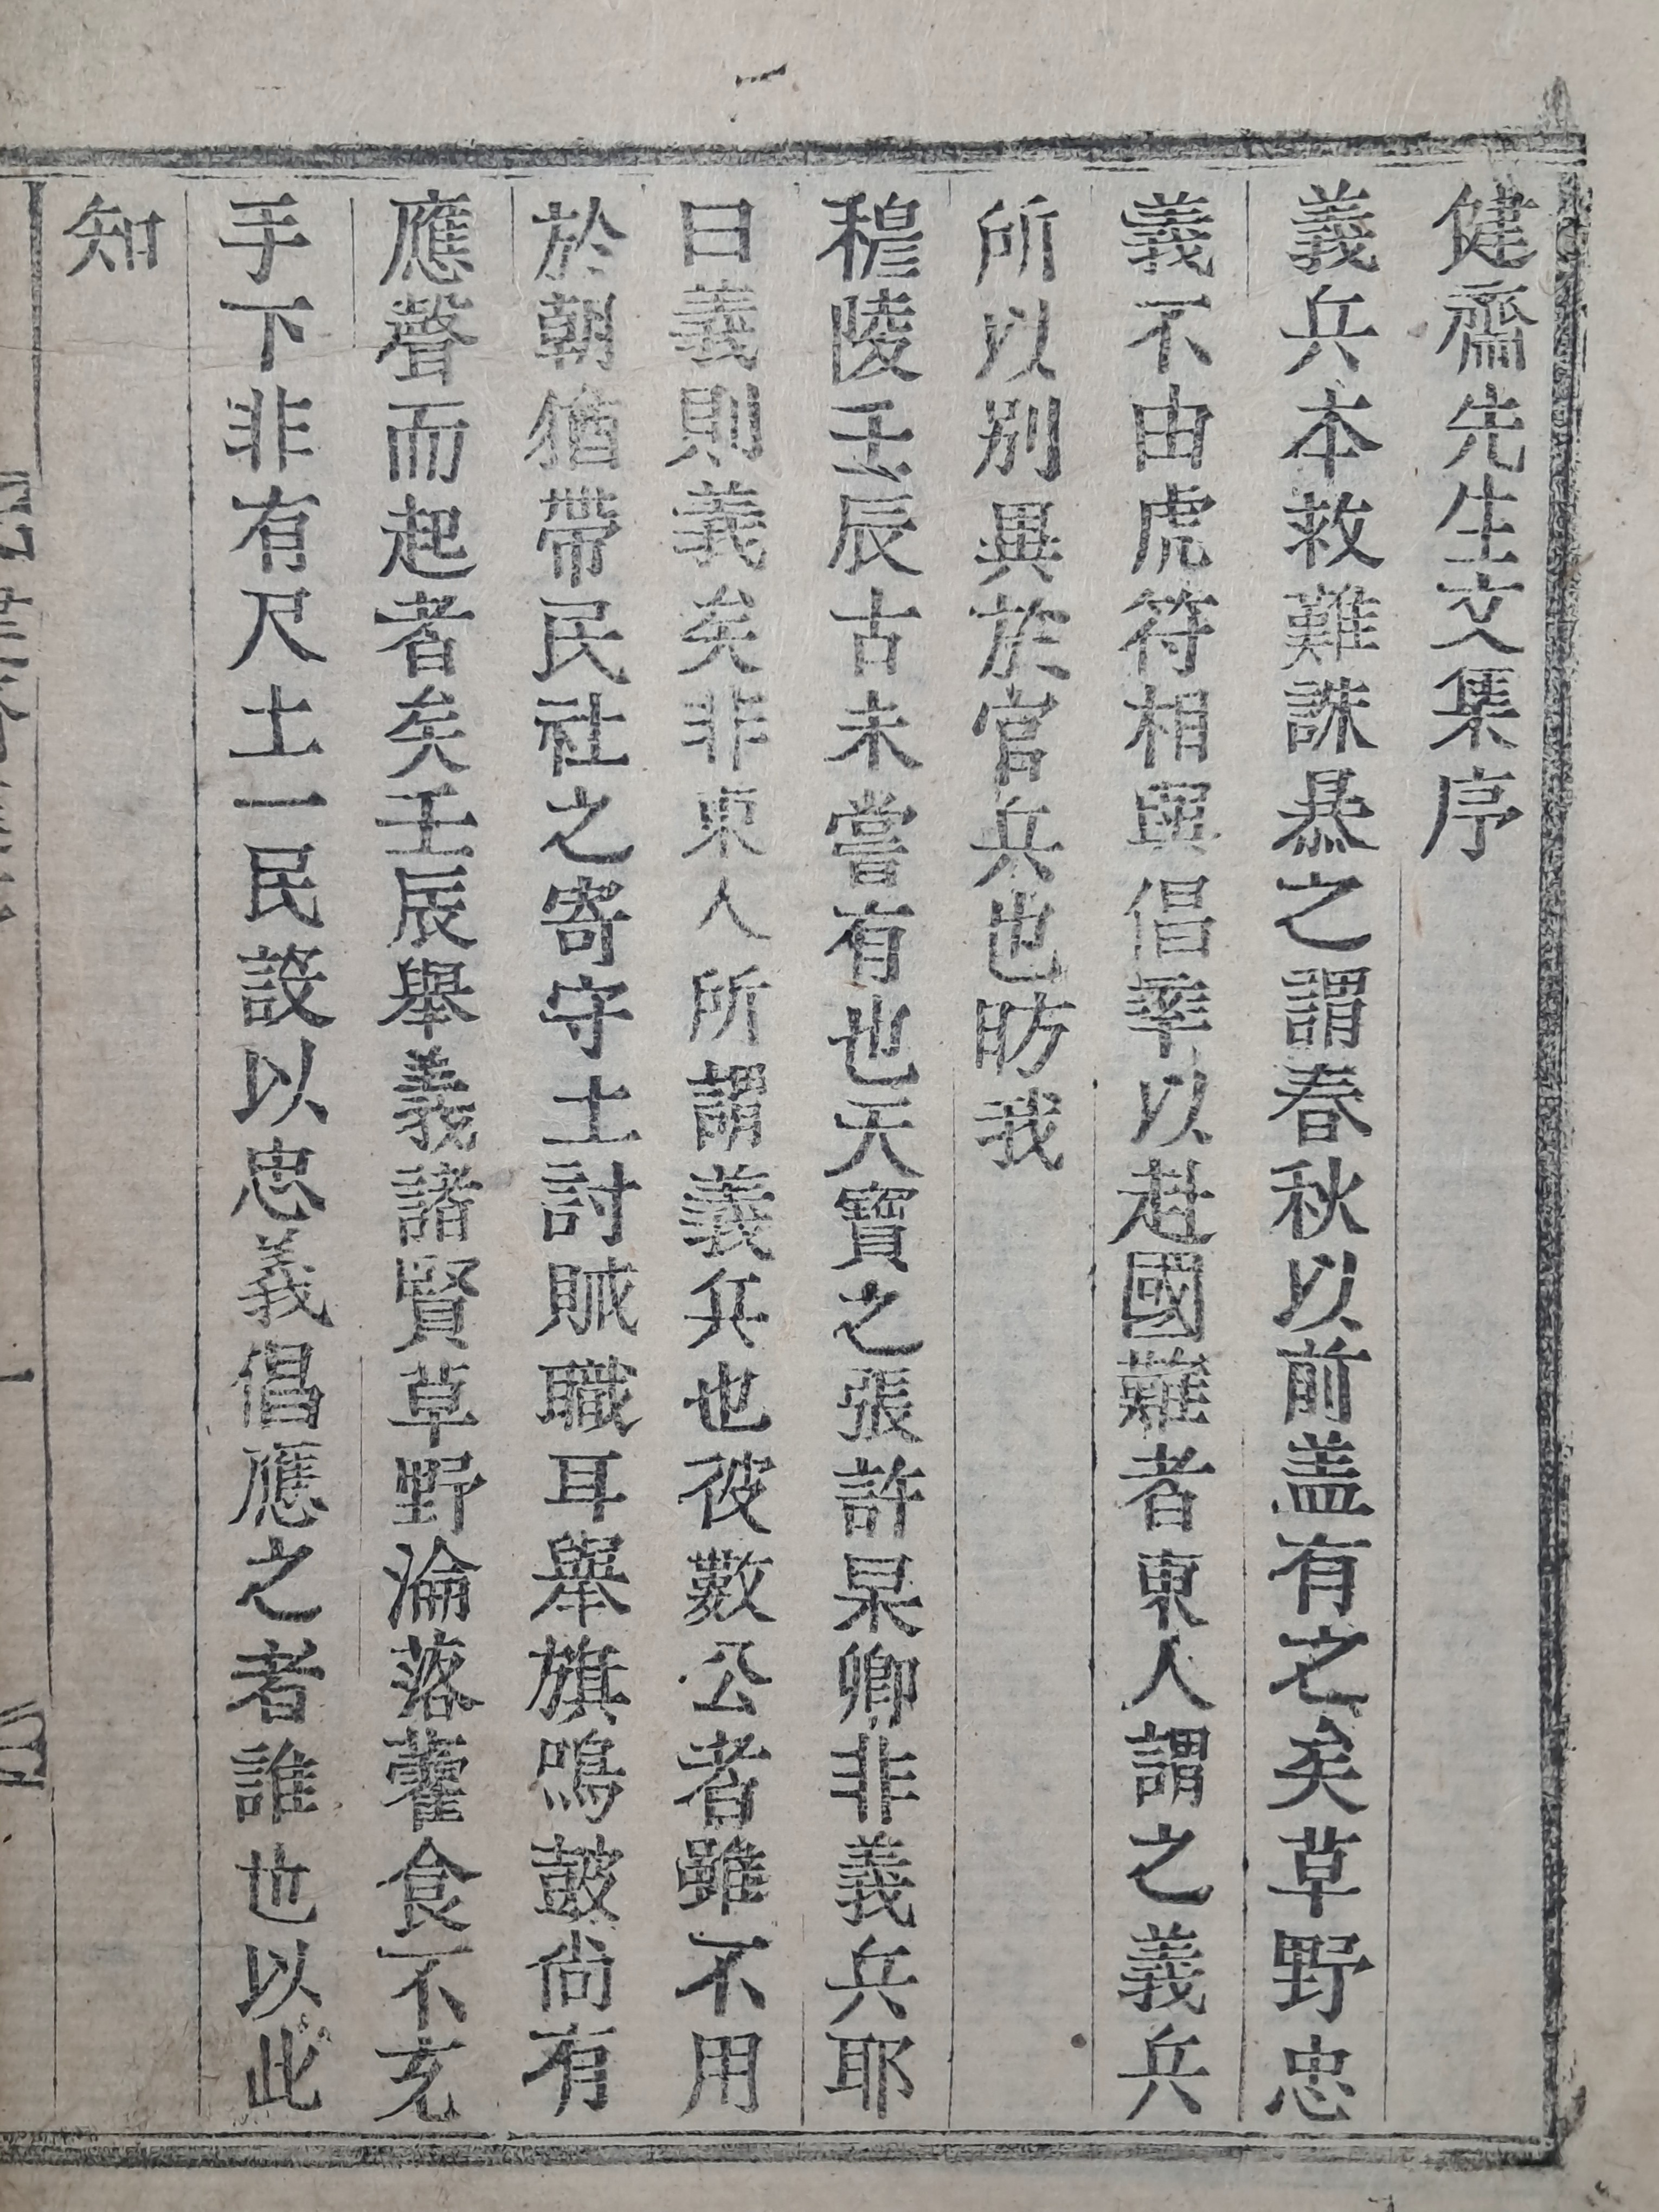 健齋先生文集序
義兵本救難誅暴之謂春秋以前盖有之矣草野忠
義不由虎符相與倡率以赴國難者東人謂之義兵
所以別異於官兵也昉我
穆陵壬辰古未嘗有也天寶之張許杲卿非義兵耶
曰義則義矣非東人所謂義兵也彼數公者雖不用
於朝猶帶民社之寄守土討賊職耳擧旗鳴鼓尙有
應聲而起者矣壬辰擧義諸賢草野淪落藿食不充
手下非有尺土一民設以忠義倡應之者誰也以此
知
一